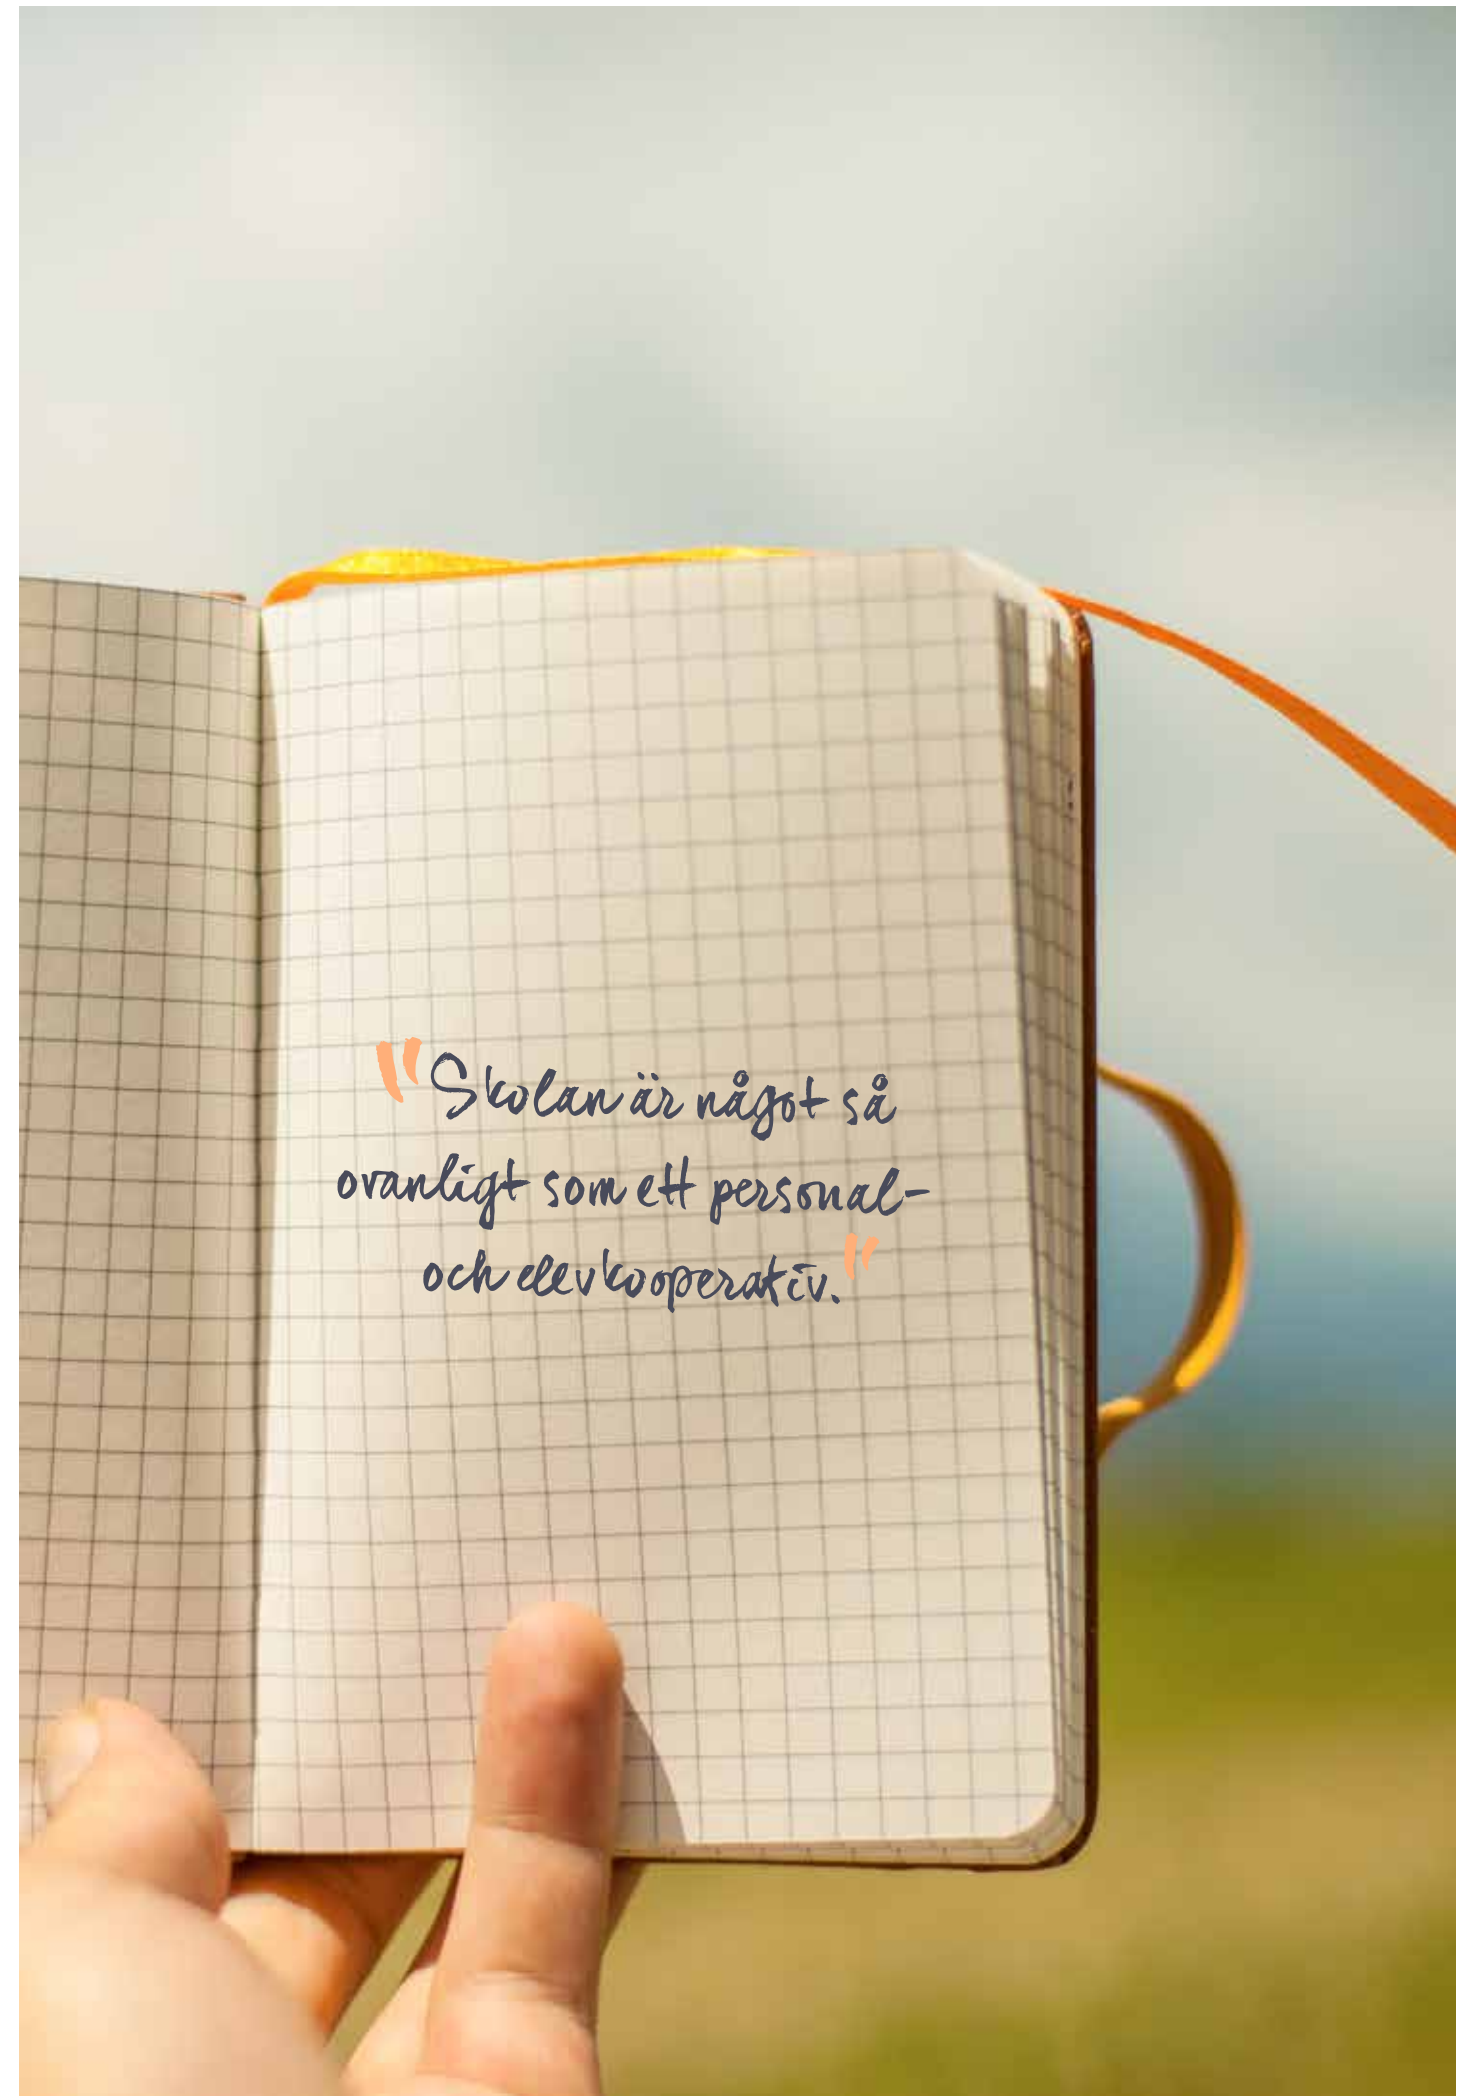 "Skolan är något så
ovanligt som ett personal-
och elevkooperativ."